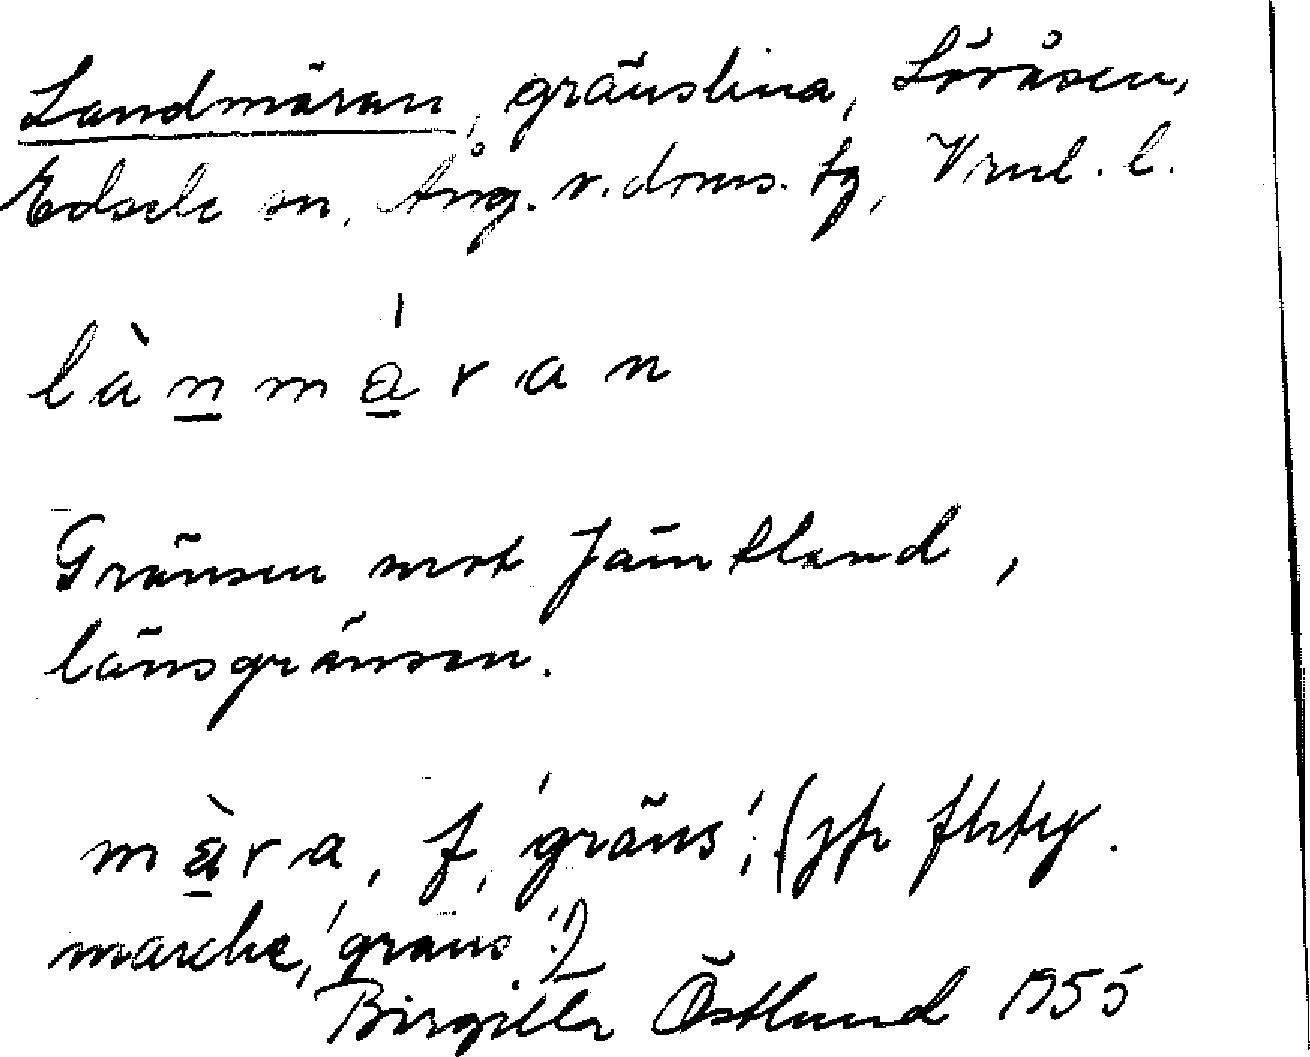 Landmäran, gränslina, Lövåsen,
Edsele sn, Ång. v. doms. tg, Vml. l.
lànmáran
Gränsen mot Jämtland,
länsgränsen.
màra, f, 'gräns'; (jfr fhty.
marche, 'gräns'?)
Birgitta Östlund 1955